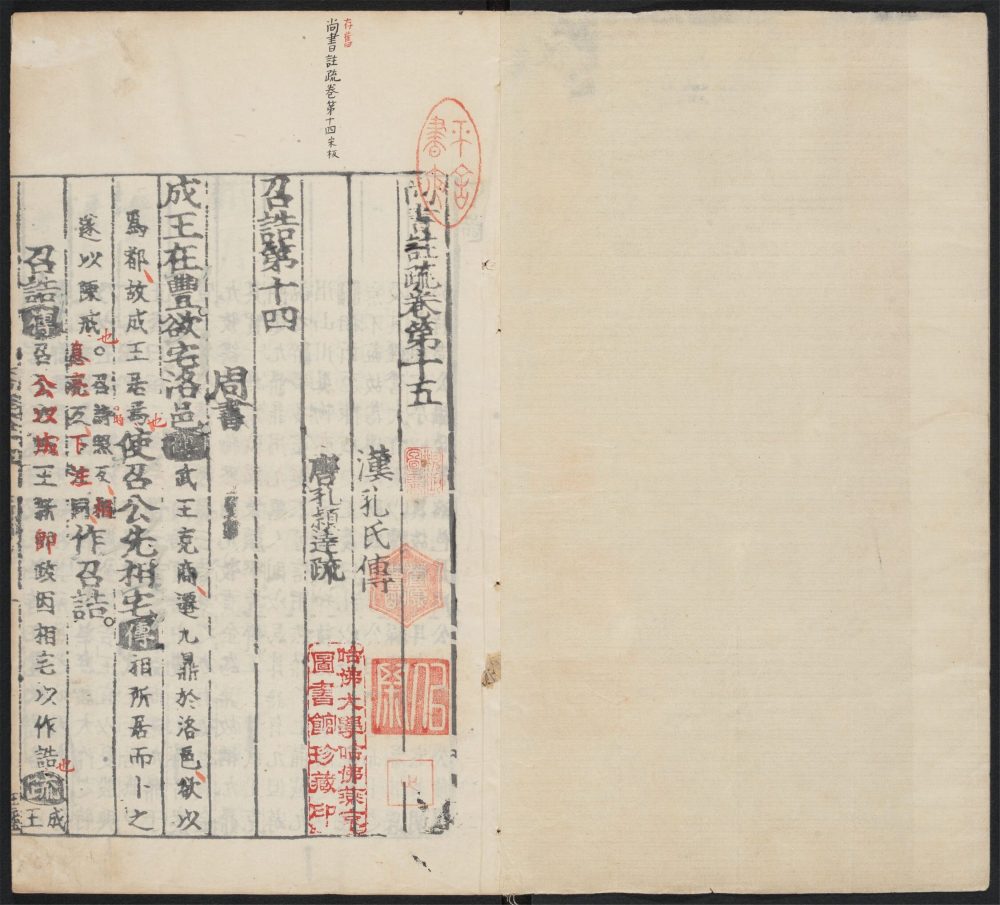 存舊
尚書註疏卷第十四宋板
尚書註疏卷第十五
漢孔氏傳
唐孔穎達疏
召誥第十四
周書
成王在豐欲宅洛邑傳武王克商遷九鼎於洛邑欲以
為都故成王居焉也使召公先相宅傳相所居而卜之
遂以陳戒也。召詩照反相息亮反下注同作召誥。
召誥傳召公以成王新即政因相宅以作誥也疏成王
哈佛大學哈佛燕京
圖書館珍藏印